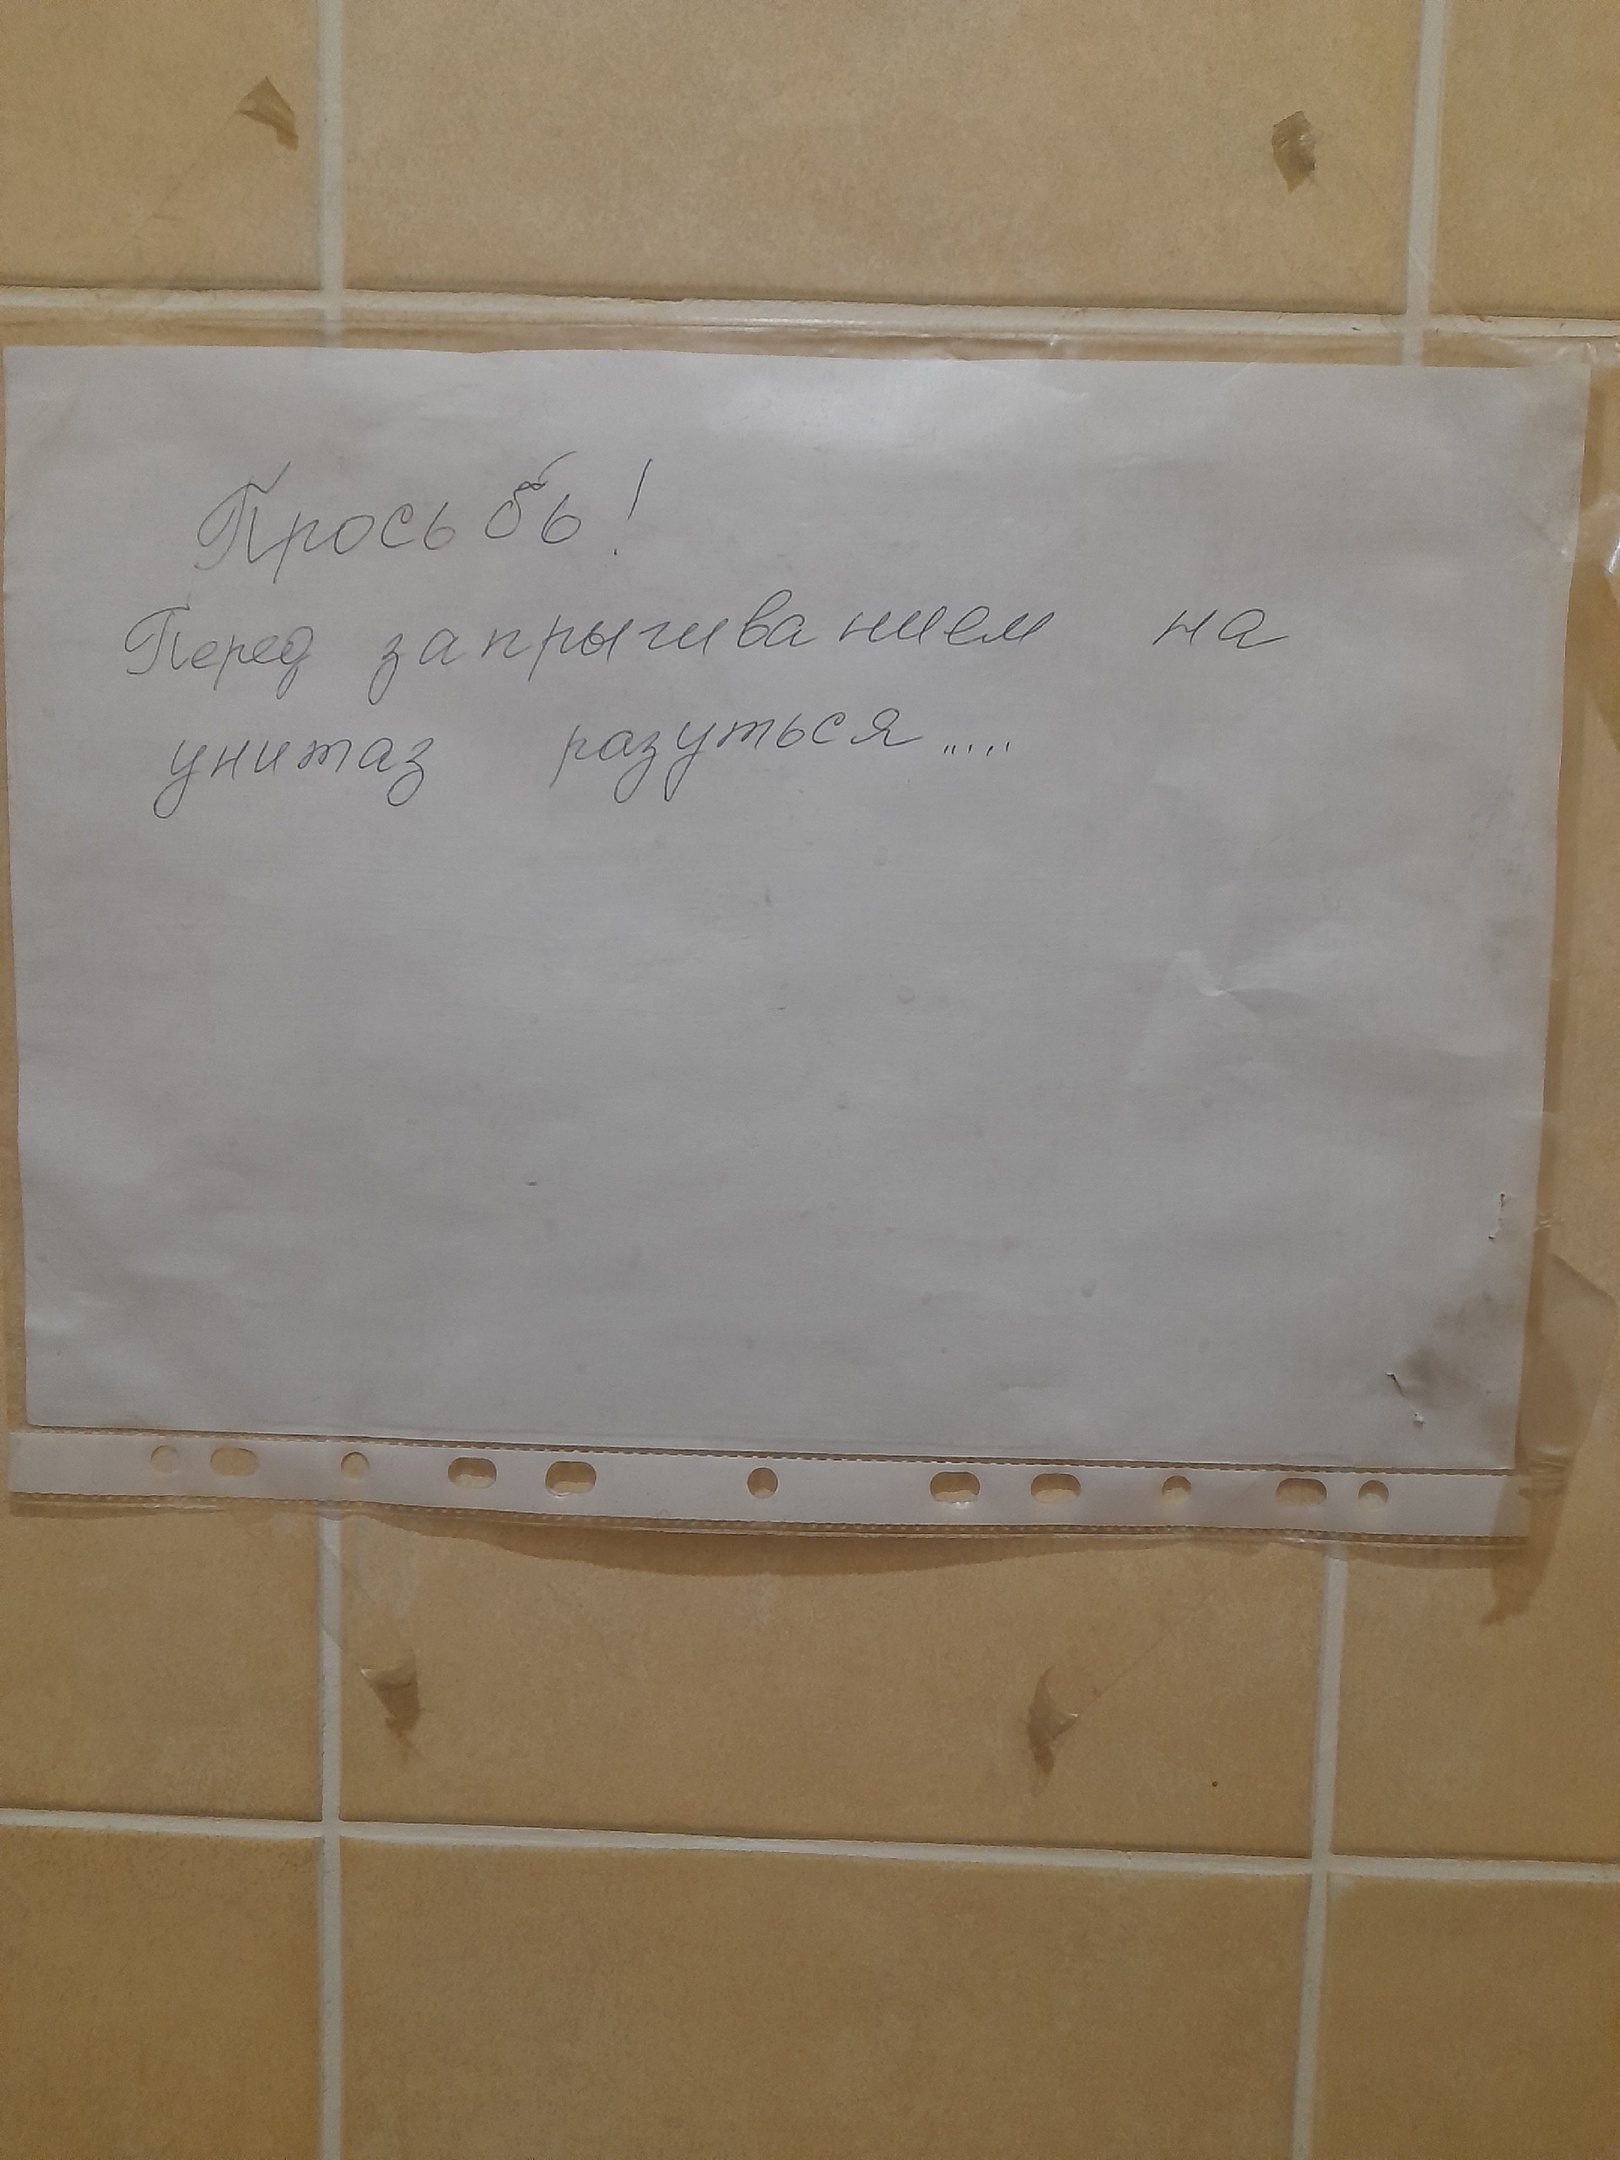 Просьбь!
Перед запрыгиванием на
унитаз разуться.....